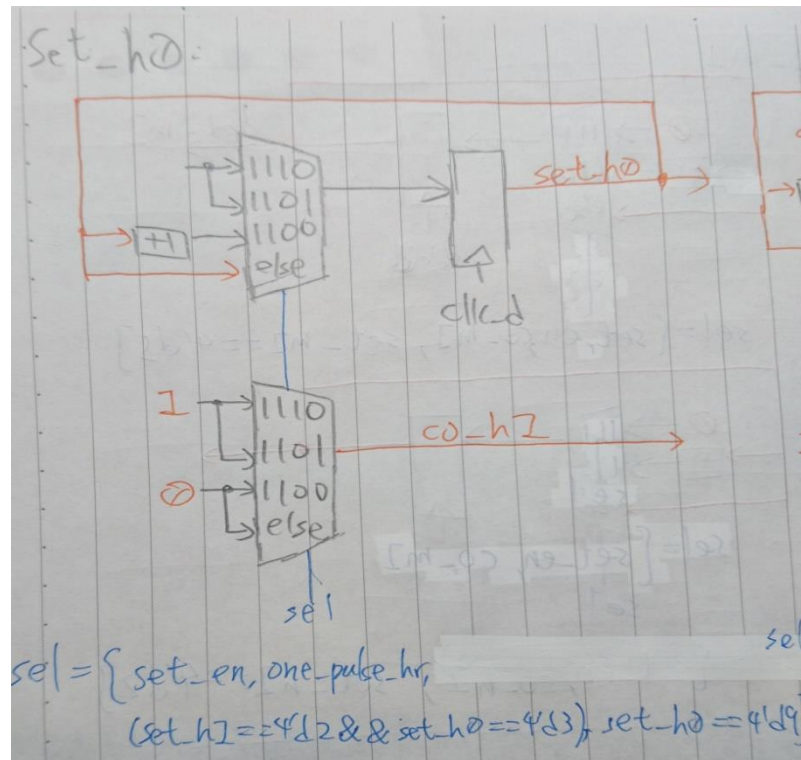 set_h0:
1110
1101
1100
else
+1
set_h0
clk_d
1
1110
1101
0
1100
else
co_h1
sel
sel = { set_en, one_pulse_hr,
(set_h1==4'd2 && set_h0==4'd3), set_h0==4'd9
sel